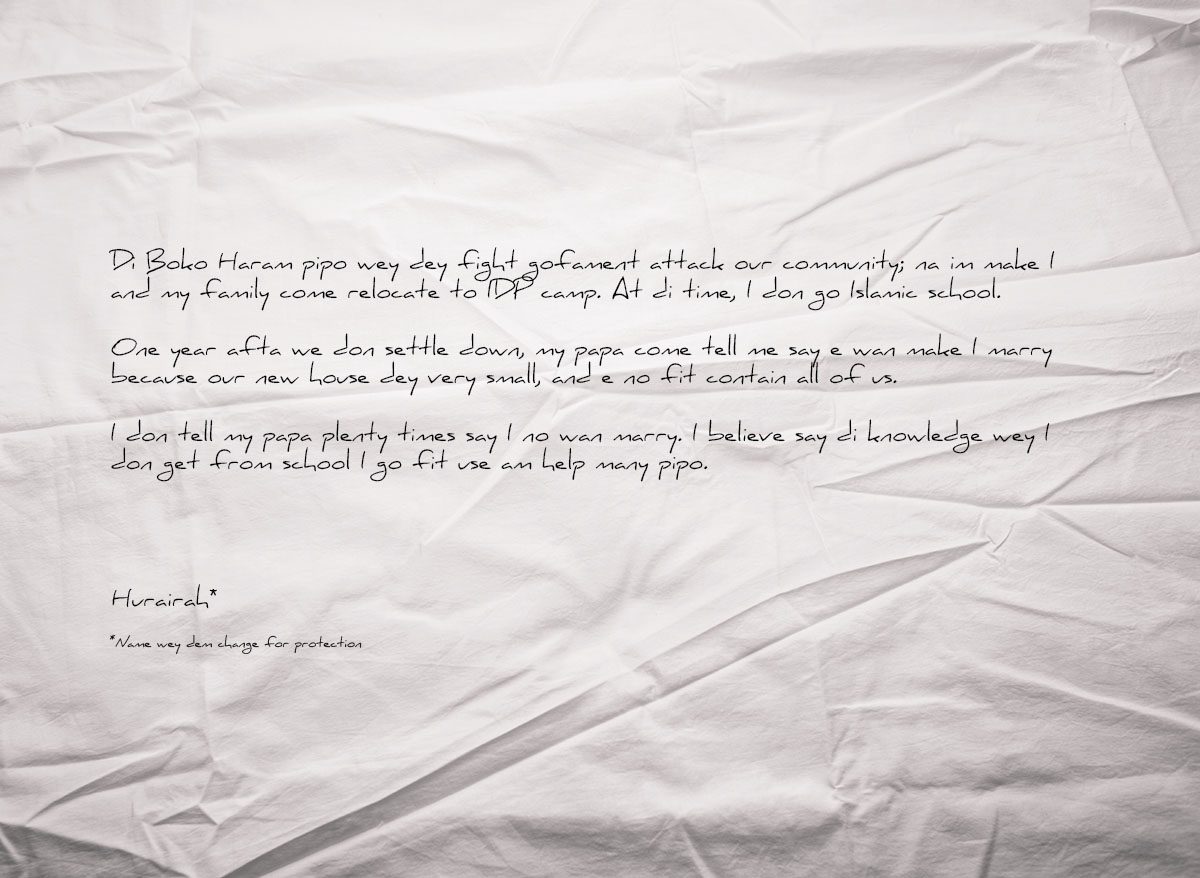 Di Boko Haram pipo wey dey fight gofament attack our community; na im make I
and my family come relocate to IDP camp. At di time, I don go Islamic school.
One year afta we don settle down, my papa come tell me say e wan make I marry
because our new house dey very small, and e no fit contain all of us.
I don tell my papa plenty times say I no wan marry. I believe say di knowledge wey I
don get from school I go fit use am help many pipo.
Hurairah*
*Name wey dem change for protection